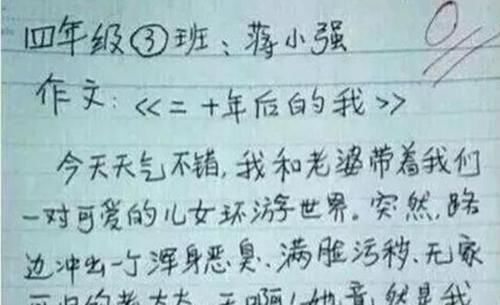 四年级③班:蒋小强
0
作文:<<二十年后的我>>
今天天气不错,我和老婆带着我们
一对可爱的儿女环游世界。突然,路
边冲出一个浑身恶臭、满脸污秽、无家
可归的老太太,天啊!她竟然是我